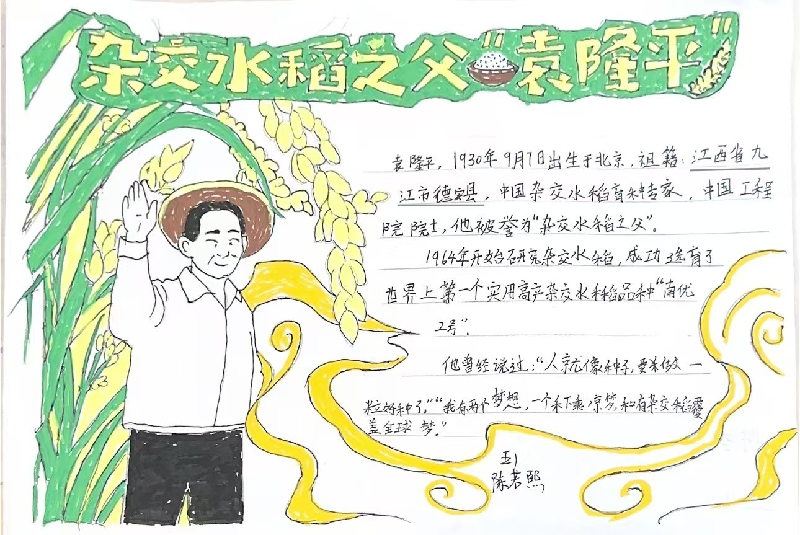 杂交水稻之父"袁隆平"
袁隆平，1930年9月7日出生于北京，祖籍江西省九
江市德安县，中国杂交水稻育种专家，中国工程
院院士，他被誉为"杂交水稻之父"。
1964年开始研究杂交水稻，成功选育了
世界上第一个实用高产杂交水稻品种"南优
2号"。
他曾经说过："人就像种子，要做一
粒好种子。""我有两个梦想，一个禾下乘凉梦，和有杂交稻覆
盖全球梦。"
五1
陈若熙